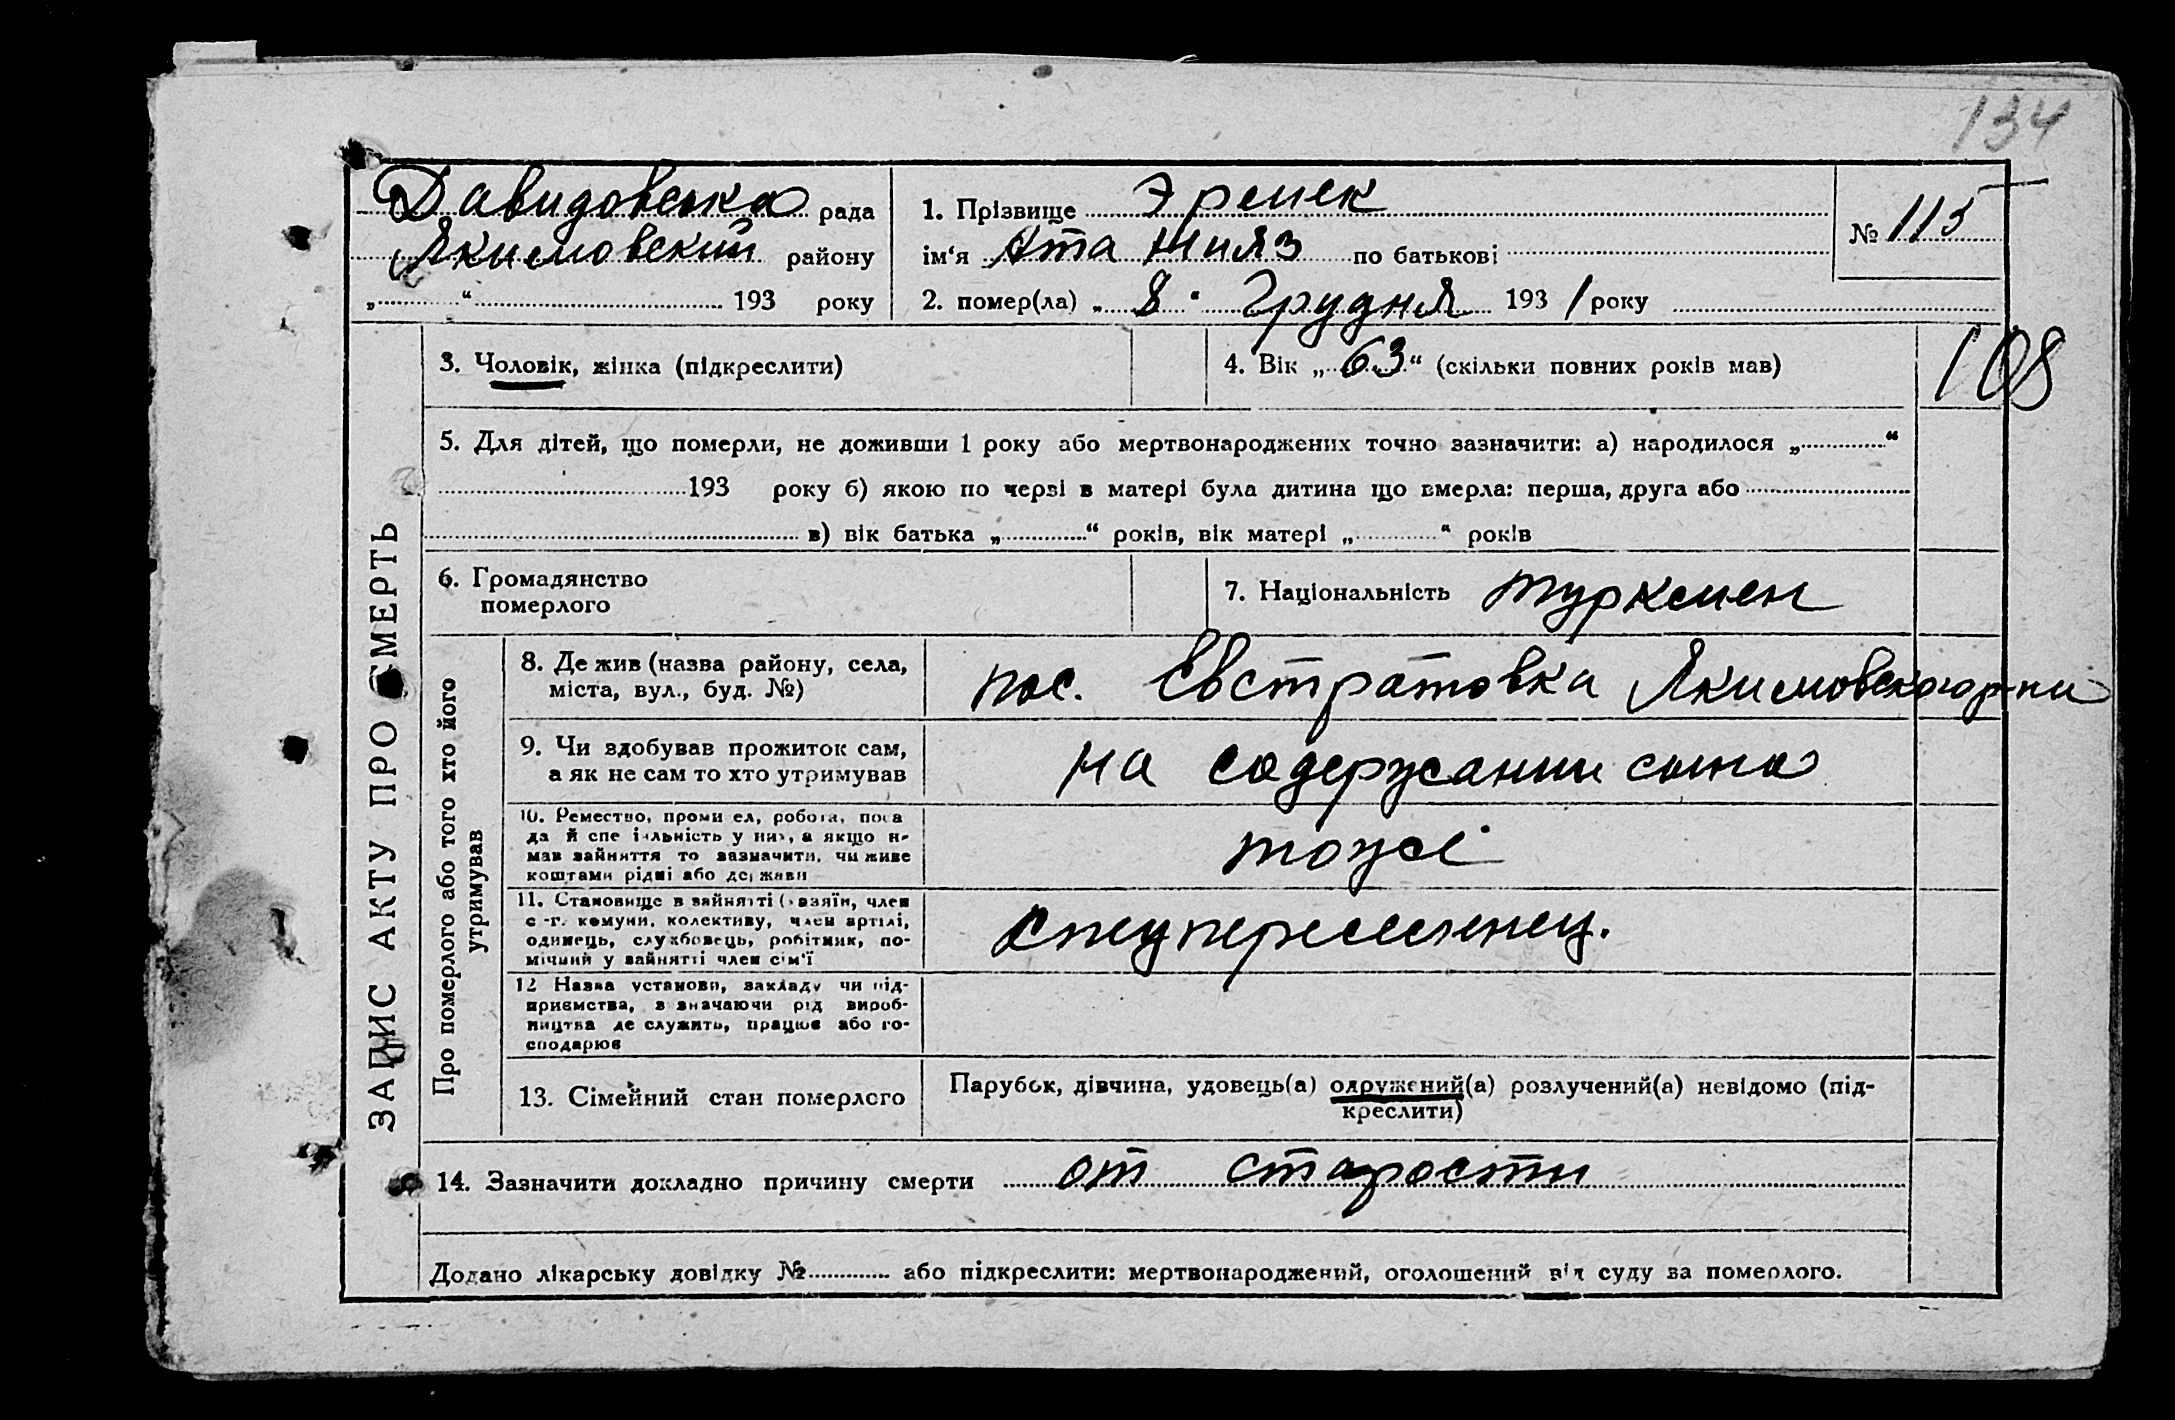 134
Давидовська рада
Якимовский району
„ “ 193 року
1. Прізвище Эрмек
ім‘я Ата Нияз по батькові
2. помер(ла) „ 8 “ Грудня 193 1 року
№ 115
108
ЗАПИС АКТУ ПРО СМЕРТЬ
3. Чоловік, жінка (підкреслити)
4. Вік „ 63 “ (скільки повних років мав)
5. Для дітей, що померли, не доживши 1 року або мертвонароджених точно зазначити: а) народилося „ “
193 року б) якою по черзі в матері була дитина що вмерла: перша, друга або
в) вік батька „ “ років, вік матері „ “ років
6. Громадянство
померлого
7. Національність туркмен
Про померлого або того хто його
утримував
8. Де жив (назва району, села,
міста, вул., буд. №)
пос. Евстратовка Якимовского р-на
9. Чи здобував прожиток сам,
а як не сам то хто утримував
на содержании сына
10. Ремество, проми ел, робота, поса
да й спе іальність у ни, а якщо н-
мав зайняття то зазначити, чи живе
коштами рідні або держави
тоже
11. Становище в зайнятті (хазяїн, член
с -г. комуни, колективу, член артілі,
одинець, службовець, робітник, по-
мічний у зайнятті член сім'ї
спецпереселенец.
12 Назва установи, закладу чи під-
приємства, в значаючи рід вироб-
ництва де служить, працює або го-
сподарює
13. Сімейний стан померлого
Парубок, дівчина, удовець(а) одружений(а) розлучений(а) невідомо (під-
креслити)
14. Зазначити докладно причину смерти от старости
Додано лікарську довідку № або підкреслити: мертвонароджений, оголошений від суду за померлого.